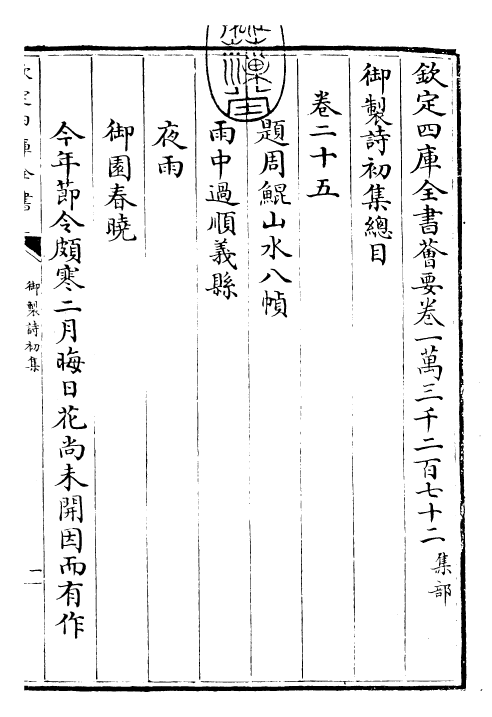 欽定四庫全書薈要卷一萬三千二百七十二集部
御製詩初集總目
卷二十五
題周鯤山水八幀
雨中過順義縣
夜雨
御園春曉
今年節令頗寒二月晦日花尚未開因而有作
御製詩初集
一